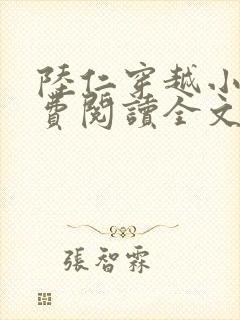 陸仁穿越小
費閱讀全文
張智霖